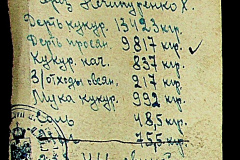 Нечипуренко Х.
Дерть кукур. 13423 кгр.
Дерть просян. 9817 кгр.
Кукур. кач. 837 кгр.
З/отходы овсян. 217 кгр.
Мука кукур. 992 кгр.
Соль 485 кгр.
755 кгр.